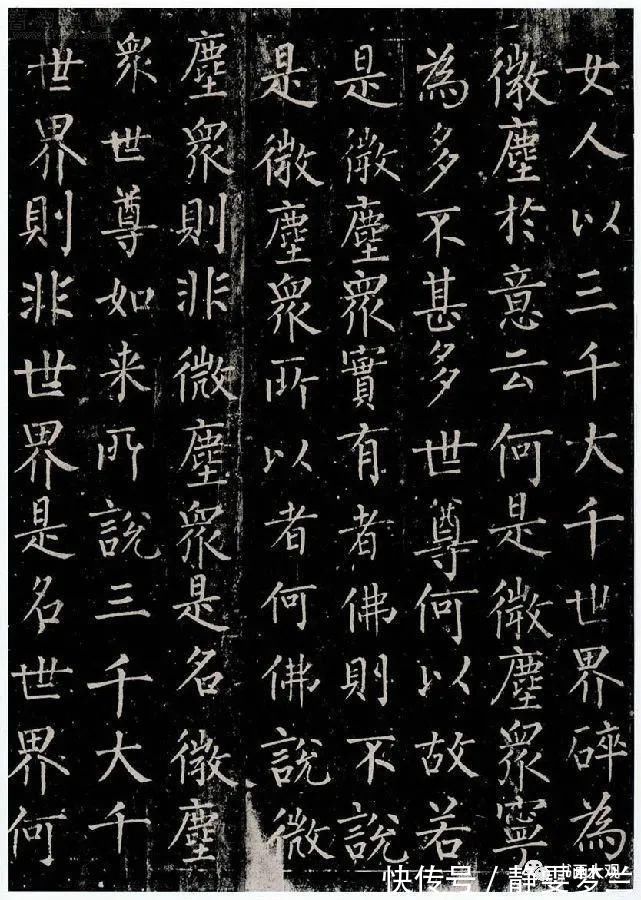 女人以三千大千世界碎為
微塵於意云何是微塵眾寧
為多不甚多世尊何以故若
是微塵眾實有者佛則不說
是微塵眾所以者何佛說微
塵眾則非微塵眾是名微塵
眾世尊如来所說三千大千
世界則非世界是名世界何
书画大观
快传号 / 静